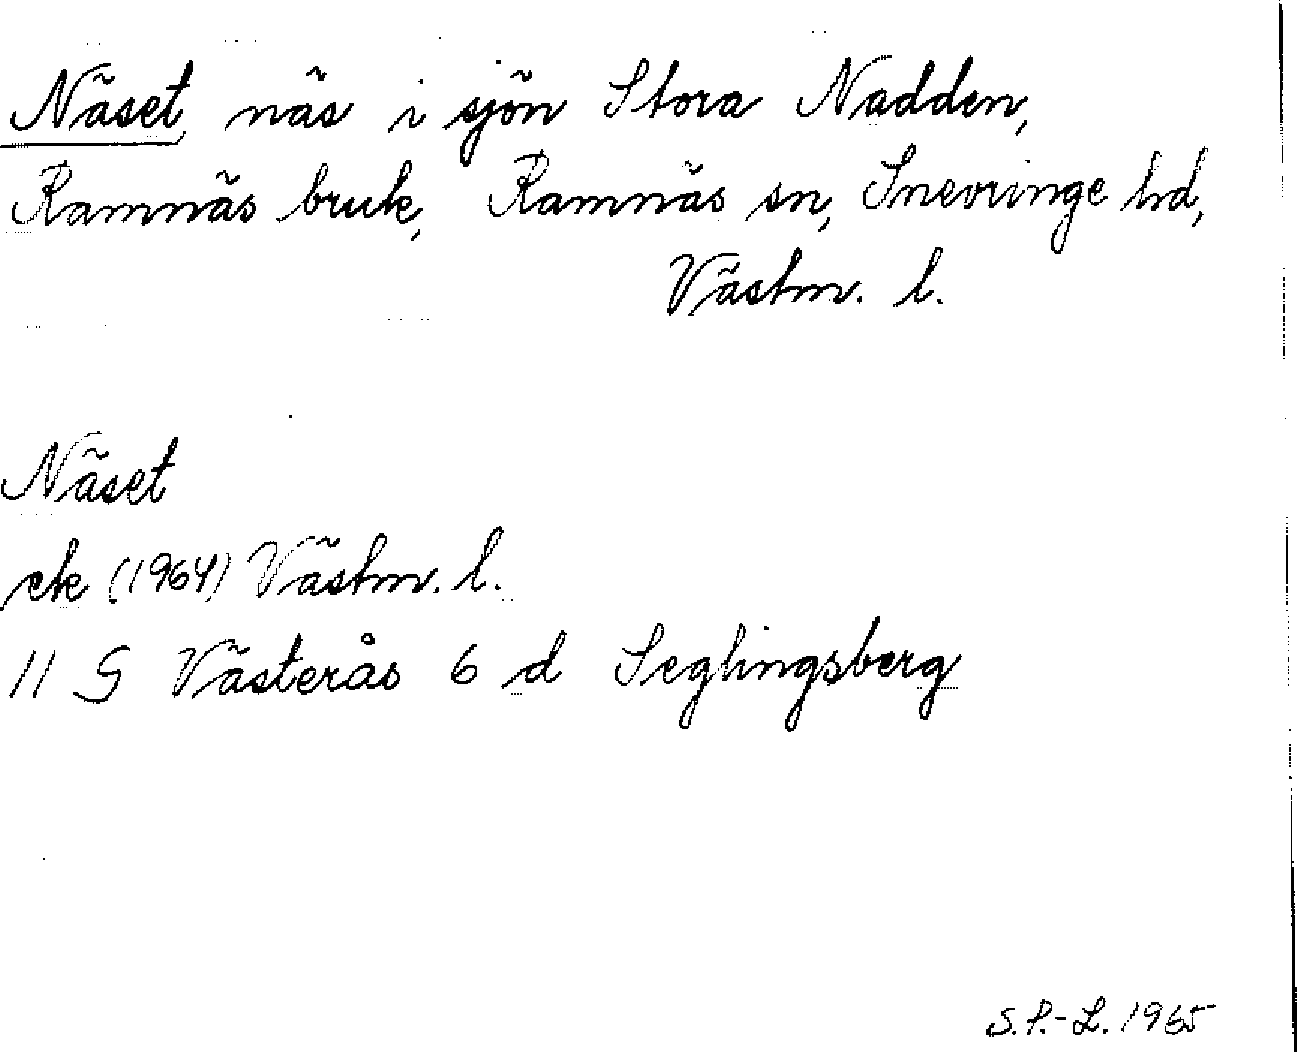 Näset, näs i sjön Stora Nadden,
Ramnäs bruk, Ramnäs sn, Snevringe hd,
Västm. l.
Näset
ek (1964) Västm. l.
11 G Västerås 6 d Seglingsberg
S.P.-L. 1965